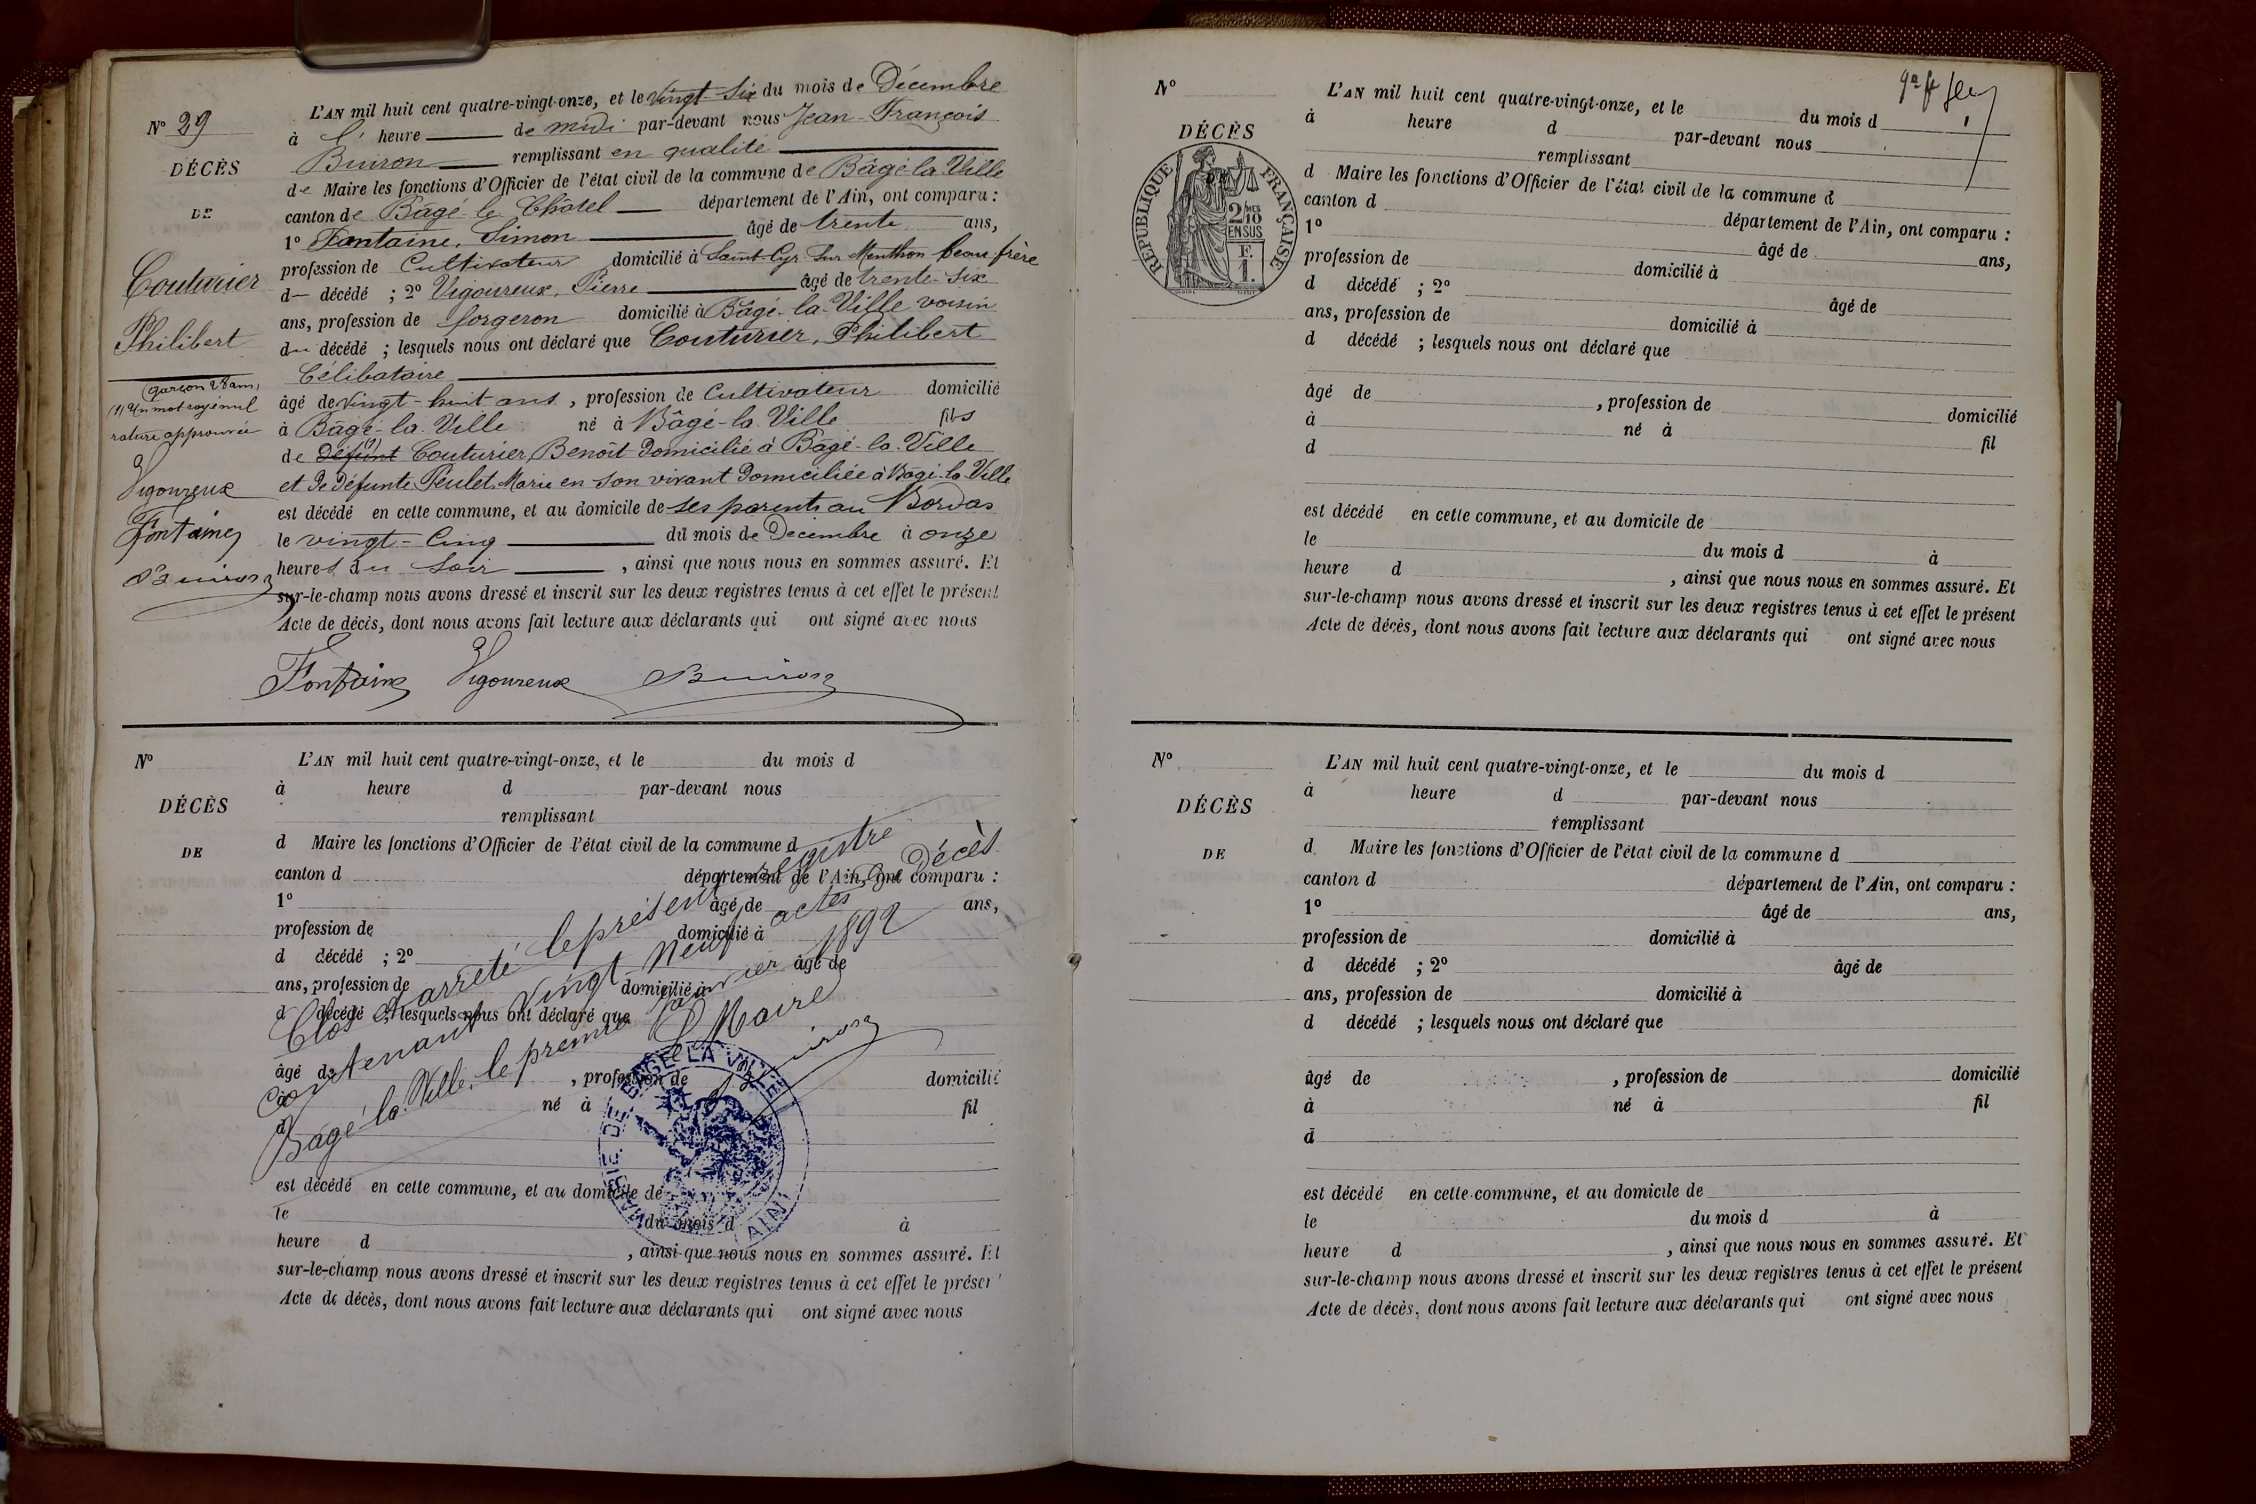 N° 29
DÉCÈS
DE
Couturier
Philibert
garçon 28 ans
(1) Un mot rayé nul
rature approuvée
Vigoureux
Fontaine
Buiron
L'AN mil huit cent quatre-vingt-onze, et le vingt-six du mois de Décembre
à l' heure de midi par-devant nous Jean-François
Buiron remplissant en qualité
de Maire les fonctions d'Officier de l'état civil de la commune de Bâgé-la-Ville
canton de Bâgé-le-Châtel département de l'Ain, ont comparu :
1° Fontaine, Simon âgé de trente ans,
profession de Cultivateur domicilié à Saint-Cyr-sur-Menthon beau frère
d décédé ; 2° Vigoureux, Pierre âgé de trente-six
ans, profession de forgeron domicilié à Bâgé-la-Ville voisin
du décédé ; lesquels nous ont déclaré que Couturier, Philibert
Célibataire
âgé de vingt-huit ans, profession de Cultivateur domicilié
à Bâgé-la-Ville né à Bâgé-la-Ville fils
de Défunt (1) Couturier, Benoît Domicilié à Bâgé-la-Ville
et de défunte Peulet Marie en son vivant Domiciliée à Bâgé-la-Ville
est décédé en cette commune, et au domicile de ses parents au Bordas
le vingt-Cinq du mois de Décembre à onze
heures du Soir, ainsi que nous nous en sommes assuré. Et
sur-le-champ nous avons dressé et inscrit sur les deux registres tenus à cet effet le présent
Acte de décès, dont nous avons fait lecture aux déclarants qui ont signé avec nous
Fontaine Vigoureux Buiron
N°
DÉCÈS
DE
L'AN mil huit cent quatre-vingt-onze, et le du mois d
à heure d par-devant nous
remplissant
d Maire les fonctions d'Officier de l'état civil de la commune d
canton d département de l'Ain, ont comparu :
1° âgé de ans,
profession de domicilié à
d décédé ; 2° âgé de
ans, profession de domicilié à
d décédé ; lesquels nous ont déclaré que
âgé de , profession de domicilié
à né à fil
d
est décédé en cette commune, et au domicile de
le du mois d à
heure d , ainsi que nous nous en sommes assuré. Et
sur-le-champ nous avons dressé et inscrit sur les deux registres tenus à cet effet le présent
Acte de décès, dont nous avons fait lecture aux déclarants qui ont signé avec nous
Clos et arrêté le présent registre
contenant vingt-neuf actes de Décès
Bâgé-la-Ville, le premier Janvier 1892
Le Maire
Buiron
MAIRIE DE BAGÉ-LA-VILLE
(AIN)
N°
DÉCÈS
DE
RÉPUBLIQUE FRANÇAISE
2/10 MES
EN SUS
F.
1.
L'AN mil huit cent quatre-vingt-onze, et le du mois d
à heure d par-devant nous
remplissant
d Maire les fonctions d'Officier de l'état civil de la commune d
canton d département de l'Ain, ont comparu :
1° âgé de ans,
profession de domicilié à
d décédé ; 2° âgé de
ans, profession de domicilié à
d décédé ; lesquels nous ont déclaré que
âgé de , profession de domicilié
à né à fil
d
est décédé en cette commune, et au domicile de
le du mois d à
heure d , ainsi que nous nous en sommes assuré. Et
sur-le-champ nous avons dressé et inscrit sur les deux registres tenus à cet effet le présent
Acte de décès, dont nous avons fait lecture aux déclarants qui ont signé avec nous
N°
DÉCÈS
DE
L'AN mil huit cent quatre-vingt-onze, et le du mois d
à heure d par-devant nous
remplissant
d Maire les fonctions d'Officier de l'état civil de la commune d
canton d département de l'Ain, ont comparu :
1° âgé de ans,
profession de domicilié à
d décédé ; 2° âgé de
ans, profession de domicilié à
d décédé ; lesquels nous ont déclaré que
âgé de , profession de domicilié
à né à fil
d
est décédé en cette commune, et au domicile de
le du mois d à
heure d , ainsi que nous nous en sommes assuré. Et
sur-le-champ nous avons dressé et inscrit sur les deux registres tenus à cet effet le présent
Acte de décès, dont nous avons fait lecture aux déclarants qui ont signé avec nous